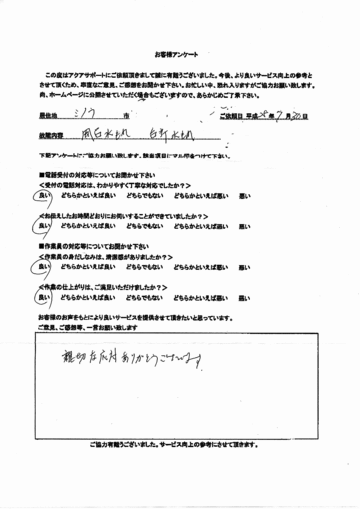 お客様アンケート
この度はアクアサポートにご依頼頂きまして誠に有難うございました。今後、より良いサービス向上の参考と
させて頂くため、率直なご意見、ご感想をお聞かせ下さい。お忙しい中、恐れ入りますがご協力お願い致します。
尚、ホームページに公開させていただく場合もございますので、あらかじめご了承下さい。
居住地 ミノウ 市 ご依頼日 平成 年 7月 日
故障内容 風呂水もれ 台所水もれ
下記アンケートにご協力お願い致します。該当項目にマル印をつけて下さい。
■電話受付の対応等についてお聞かせ下さい
<受付の電話対応は、わかりやすく丁寧な対応でしたか?>
良い どちらかといえば良い どちらでもない どちらかといえば悪い 悪い
<お伝えしたお時間どおりにお伺いすることができていましたか?>
良い どちらかといえば良い どちらでもない どちらかといえば悪い 悪い
■作業員の対応等についてお聞かせ下さい
<作業員の身だしなみは、清潔感がありましたか?>
良い どちらかといえば良い どちらでもない どちらかといえば悪い 悪い
<作業の仕上がりは、ご満足いただけましたか?>
良い どちらかといえば良い どちらでもない どちらかといえば悪い 悪い
お客様のお声をもとにより良いサービスを提供させて頂きたいと思っています。
ご意見、ご感想等、一言お願い致します
親切な応対ありがとうございます
ご協力有難うございました。サービス向上の参考にさせて頂きます。